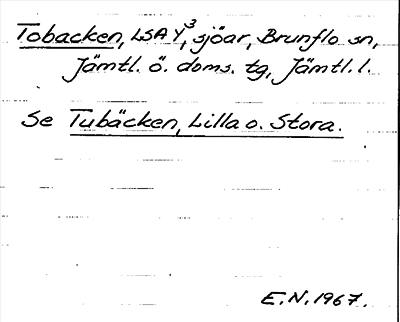 Tobacken, LSA Y,³ sjöar, Brunflo sn,
Jämtl. ö. doms. tg, Jämtl. l.
Se Tubäcken, Lilla o. Stora.
E.N. 1967.